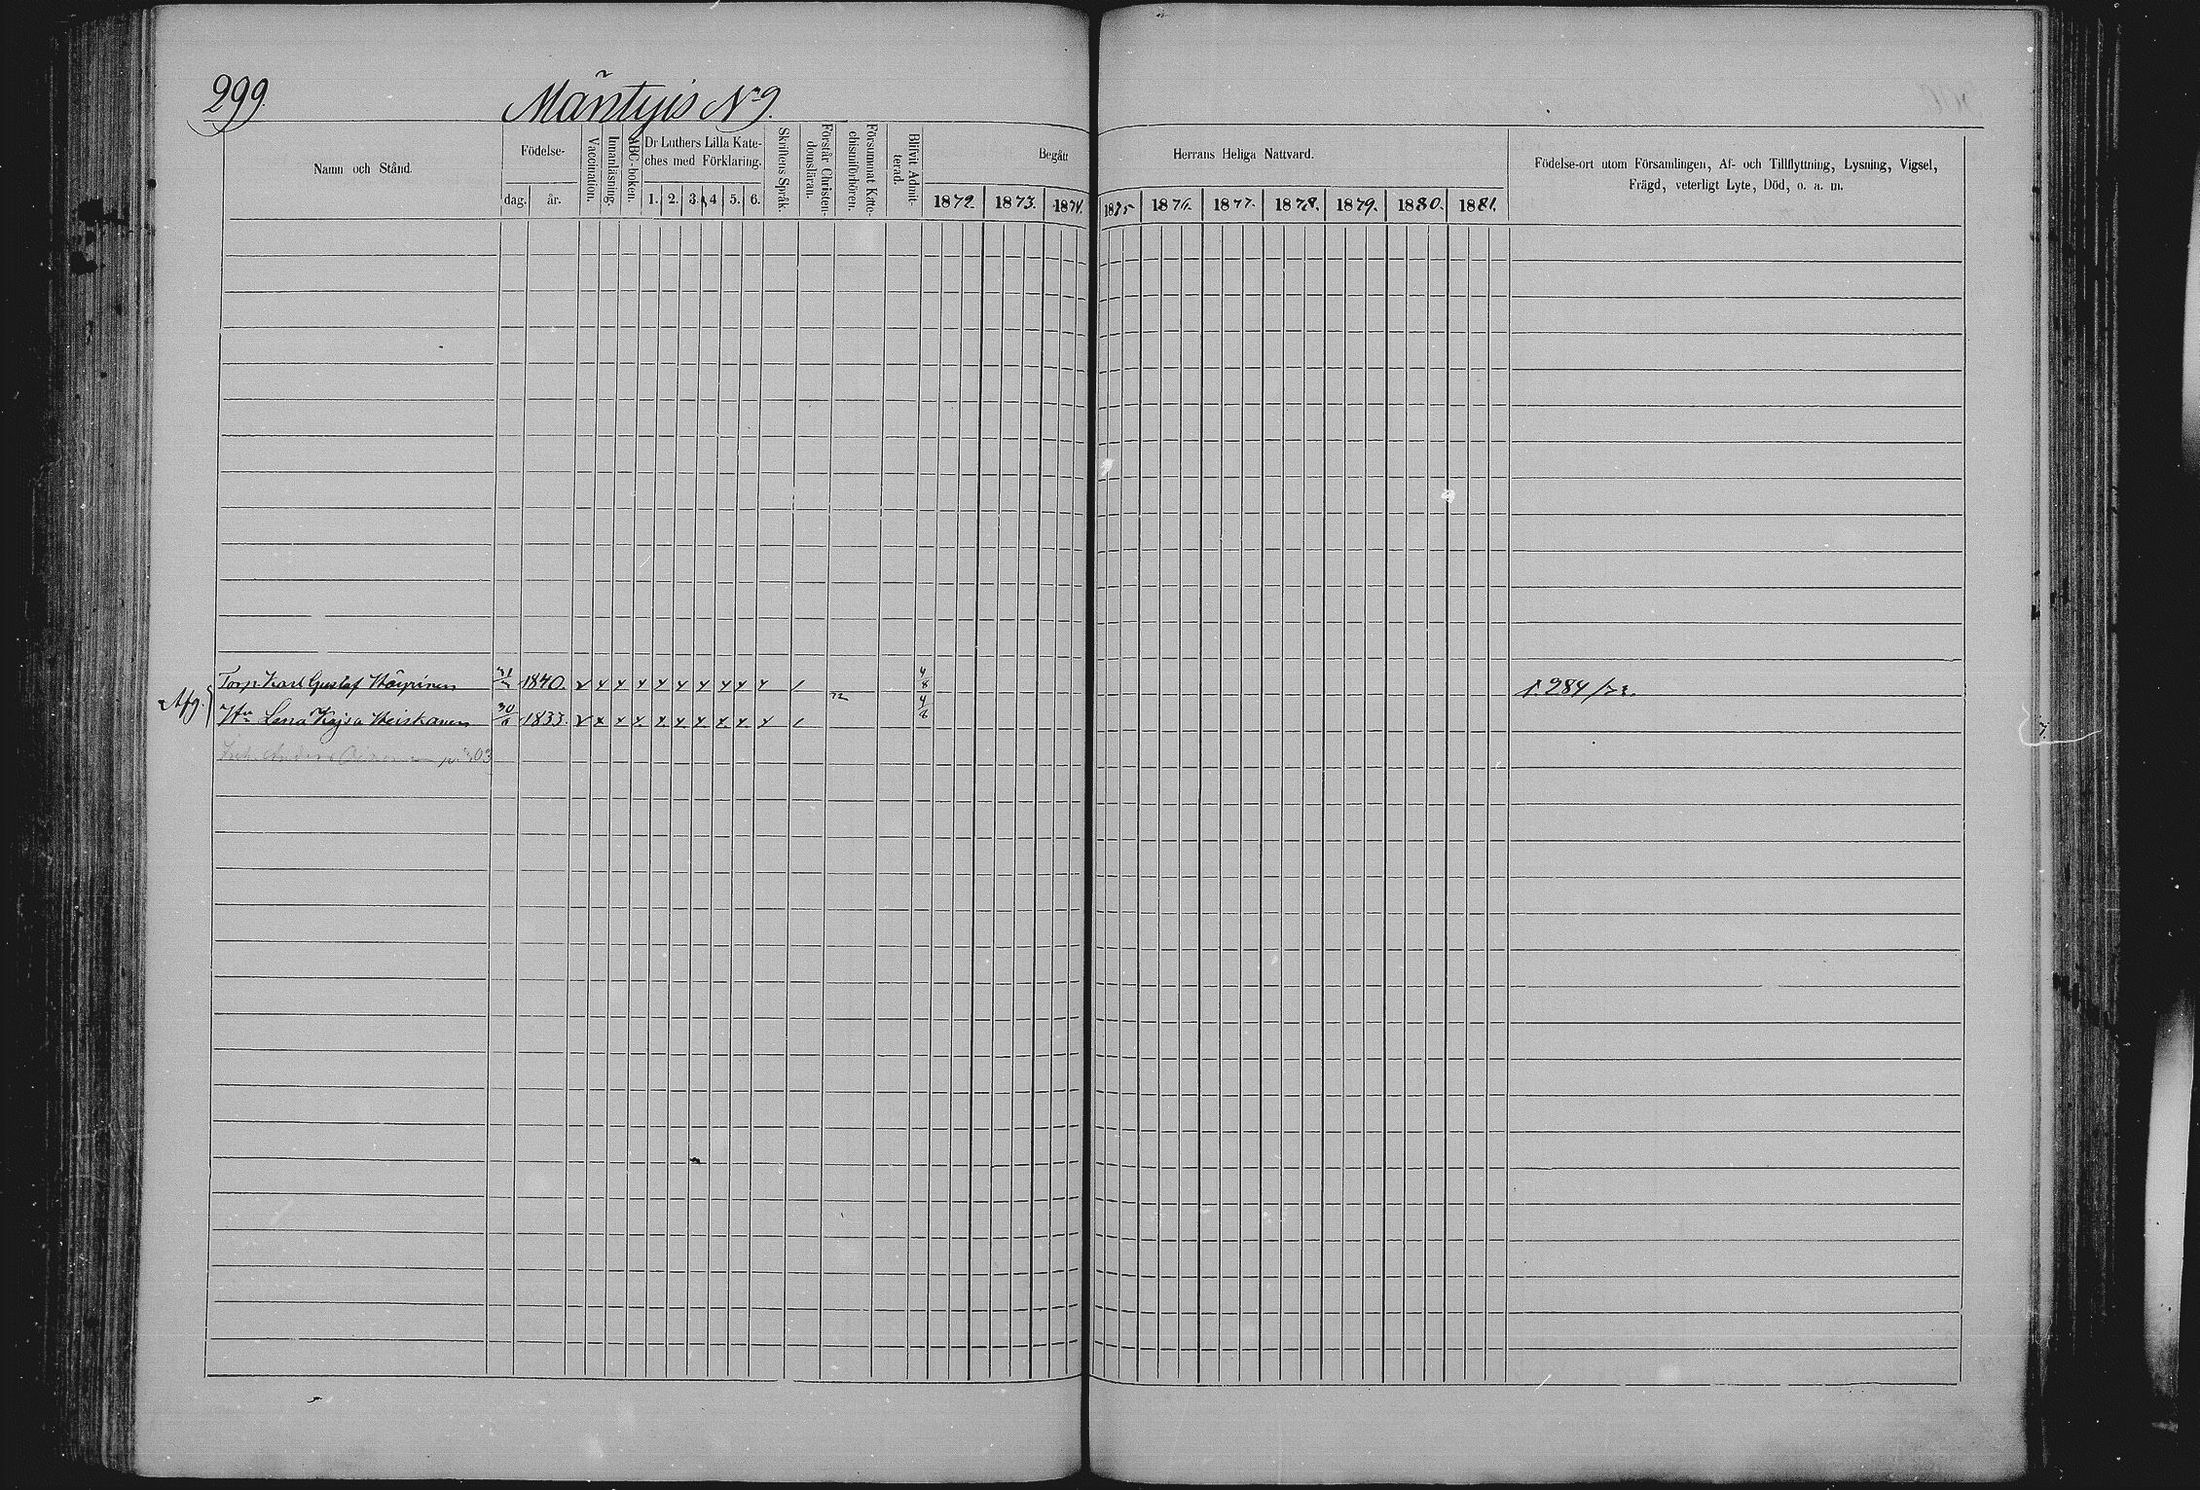 299.
Mäntyis No 9.
Namn och Stånd.
Födelse-
dag.
år.
Vaccination.
Innanläsning.
ABC-boken.
Dr Luthers Lilla Kate-
ches med Förklaring.
1. 2. 3. 4 5. 6.
Skriftens Språk.
Förstår Christen-
domsläran.
Försummat Kate-
chismiförhören.
Blifvit Admit-
terad.
Begått Herrans Heliga Nattvard.
1872. 1873. 1874. 1875 1876. 1877. 1878. 1879. 1880. 1881.
Födelse-ort utom Församlingen, Af- och Tillflyttning, Lysning, Vigsel,
Frägd, veterligt Lyte, Död, o. a. m.
Torp. Karl Gustaf 1840.
Afg.
Hu Lena Kajsa Heiskanen 30 1833.
p. 303